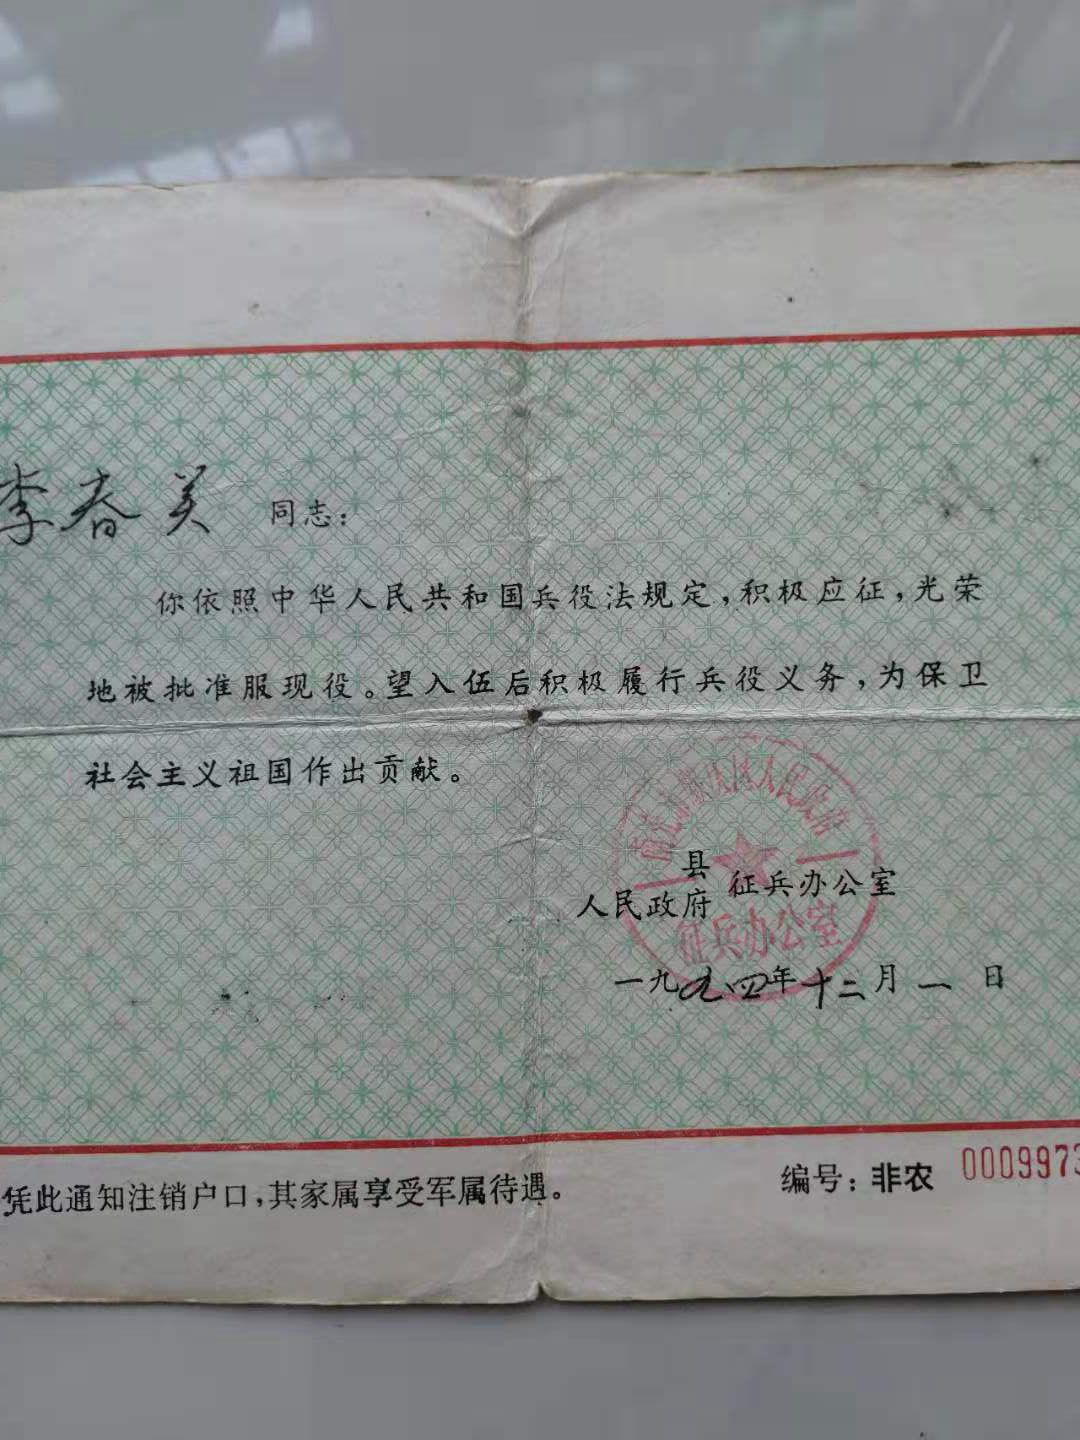 李春美 同志：
你依照中华人民共和国兵役法规定，积极应征，光荣
地被批准服现役。望入伍后积极履行兵役义务，为保卫
社会主义祖国作出贡献。
县
人民政府 征兵办公室
人民政府
征兵办公室
一九九四年十二月一日
凭此通知注销户口，其家属享受军属待遇。
编号：非农 0009973